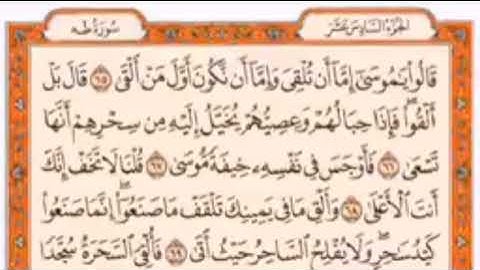 الجزء السادس عشر سورة طه
قَالُوا۟ يَـٰمُوسَىٰٓ إِمَّآ أَن تُلْقِىَ وَإِمَّآ أَن نَّكُونَ أَوَّلَ مَنْ أَلْقَىٰ ٦٥ قَالَ بَلْ
أَلْقُوا۟ ۖ فَإِذَا حِبَالُهُمْ وَعِصِيُّهُمْ يُخَيَّلُ إِلَيْهِ مِن سِحْرِهِمْ أَنَّهَا
تَسْعَىٰ ٦٦ فَأَوْجَسَ فِى نَفْسِهِۦ خِيفَةً مُّوسَىٰ ٦٧ قُلْنَا لَا تَخَفْ إِنَّكَ
أَنتَ ٱلْأَعْلَىٰ ٦٨ وَأَلْقِ مَا فِى يَمِينِكَ تَلْقَفْ مَا صَنَعُوٓا۟ ۖ إِنَّمَا صَنَعُوا۟
كَيْدُ سَـٰحِرٍ ۖ وَلَا يُفْلِحُ ٱلسَّاحِرُ حَيْثُ أَتَىٰ ٦٩ فَأُلْقِىَ ٱلسَّحَرَةُ سُجَّدًا